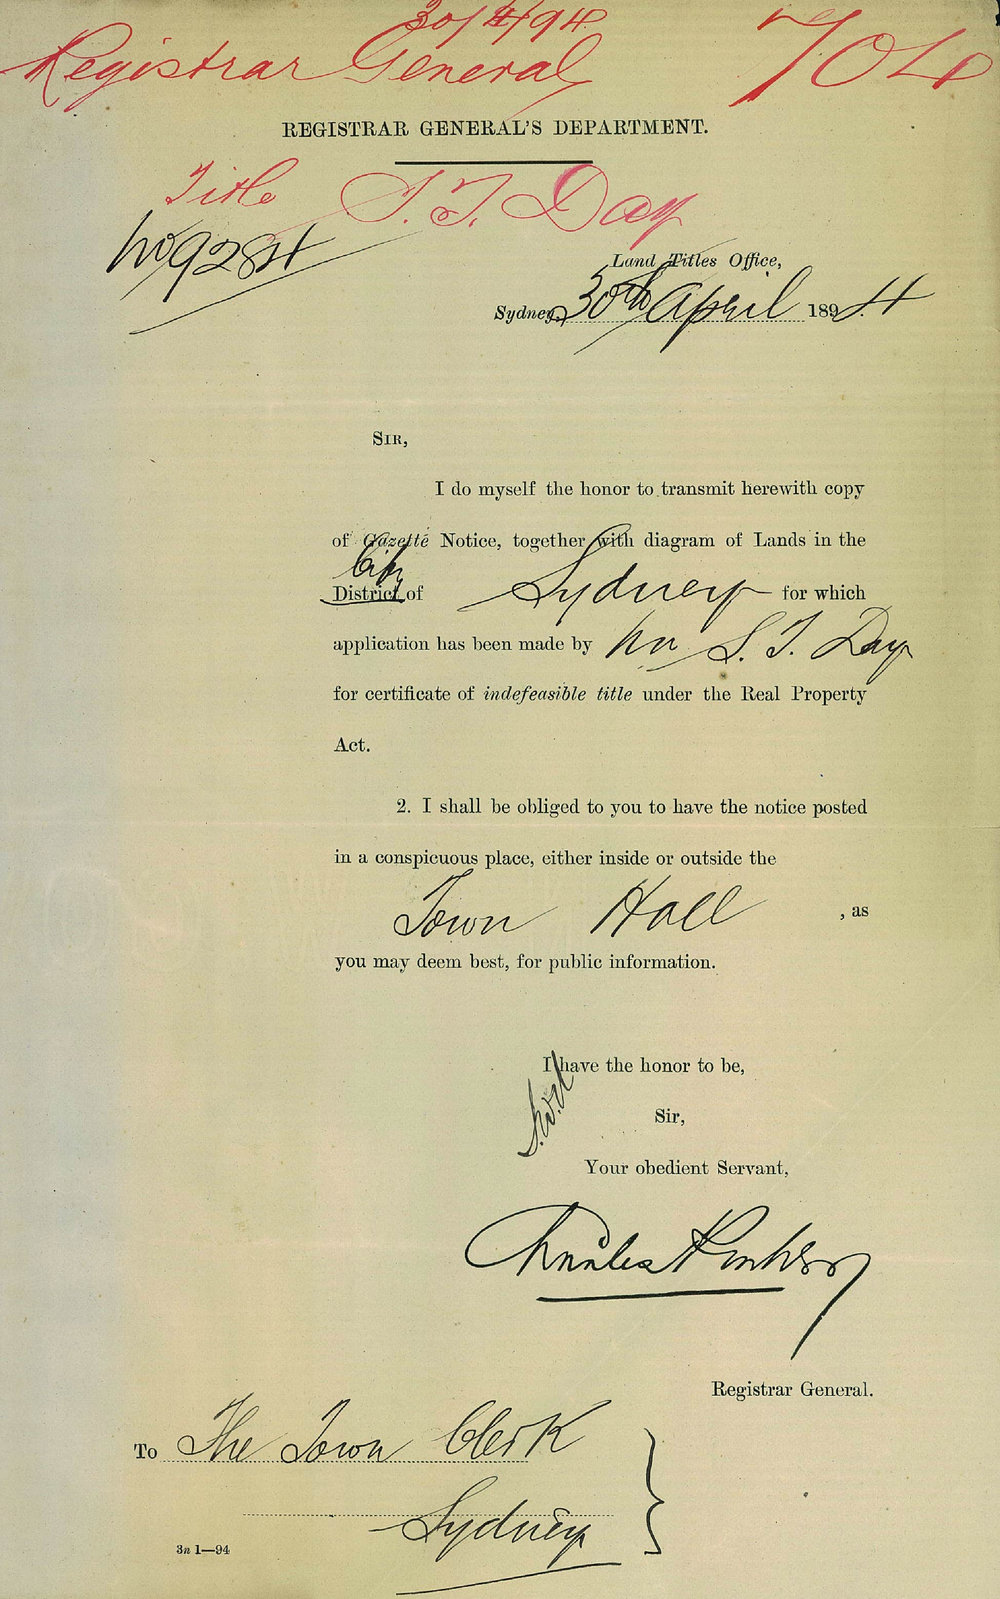 30/4/94
Registrar General 704
REGISTRAR GENERAL'S DEPARTMENT.
Title S. T. Day
No 9284
Land Titles Office,
Sydney, 30th April 1894
SIR,
I do myself the honor to transmit herewith copy
of Gazette Notice, together with diagram of Lands in the
City
District of Sydney for which
application has been made by Mr S. T. Day
for certificate of indefeasible title under the Real Property
Act.
2. I shall be obliged to you to have the notice posted
in a conspicuous place, either inside or outside the
Town Hall , as
you may deem best, for public information.
I have the honor to be,
Sir,
Your obedient Servant,
Charles
Registrar General.
To The Town Clerk
Sydney
3n 1—94